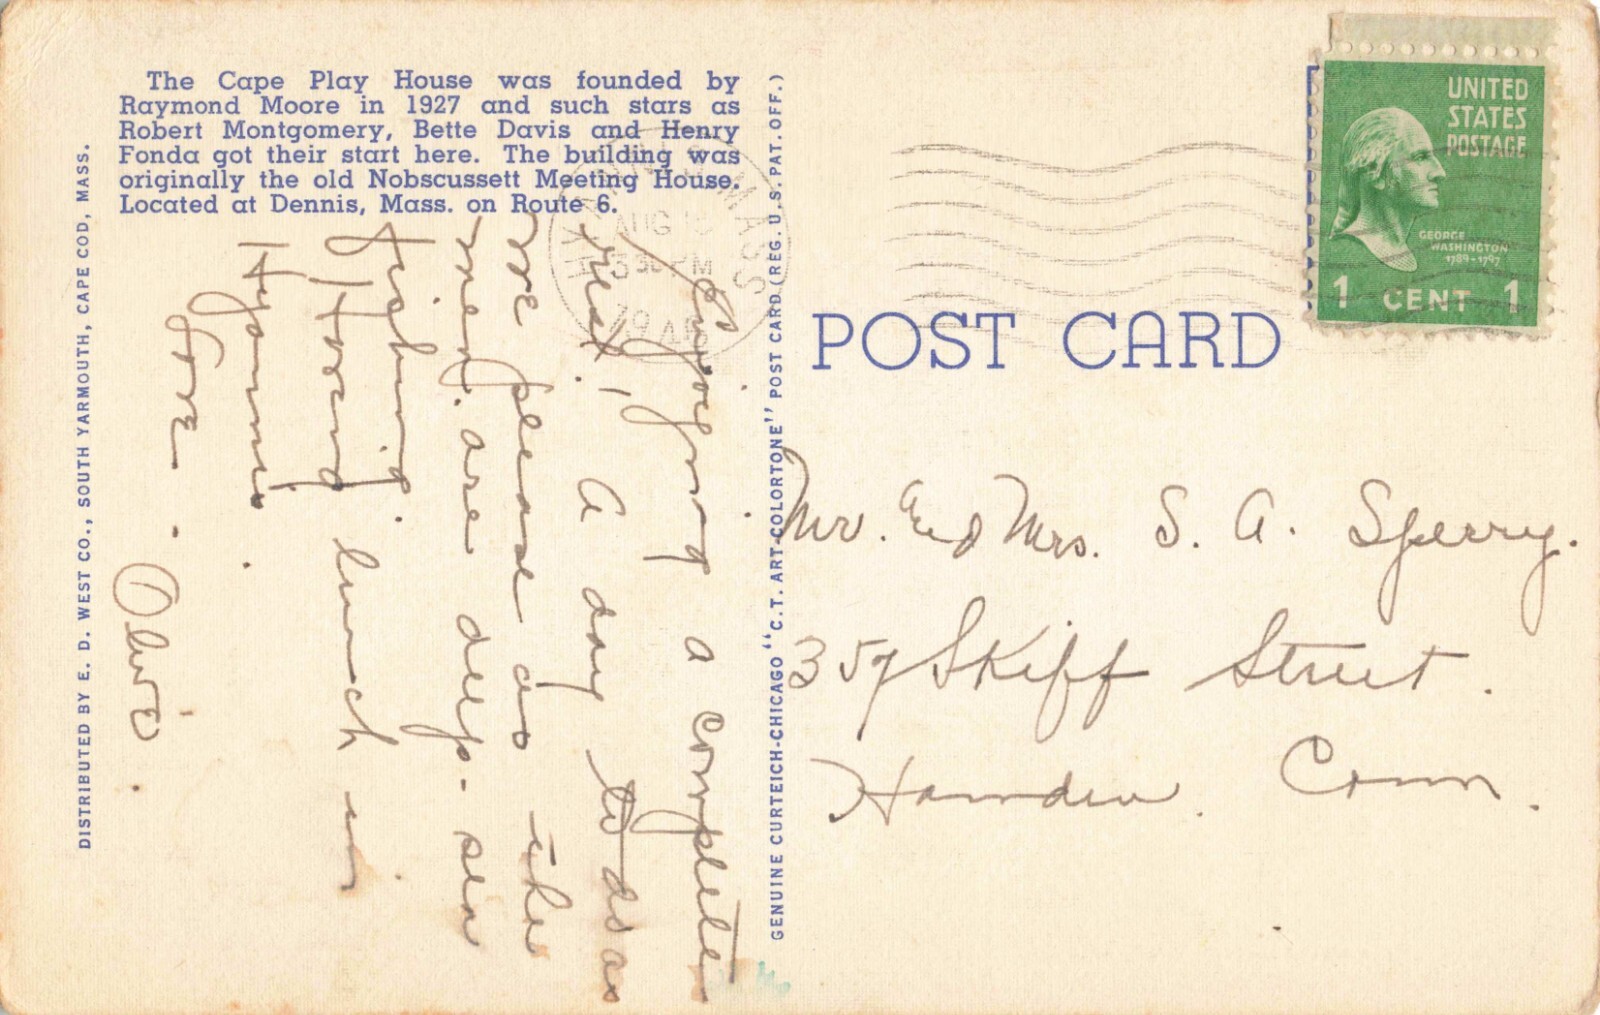 The Cape Play House was founded by
Raymond Moore in 1927 and such stars as
Robert Montgomery, Bette Davis and Henry
Fonda got their start here. The building was
originally the old Nobscussett Meeting House.
Located at Dennis, Mass. on Route 6.
DISTRIBUTED BY E. D. WEST CO., SOUTH YARMOUTH, CAPE COD, MASS.
Enjoying a complete
rest, A day to do as
we please as the
men are deep-sea
fishing.
Had lunch in
Hyannis.
Love - Olive.
GENUINE CURTEICH-CHICAGO "C.T. ART-COLORTONE" POST CARD (REG. U.S. PAT. OFF.)
MASS
AUG
3 30 PM
19
POST CARD
UNITED
STATES
POSTAGE
GEORGE
WASHINGTON
1789-1797
1 CENT 1
Mr. and Mrs. S. A. Sperry.
357 Skiff Street.
Hamden. Conn.